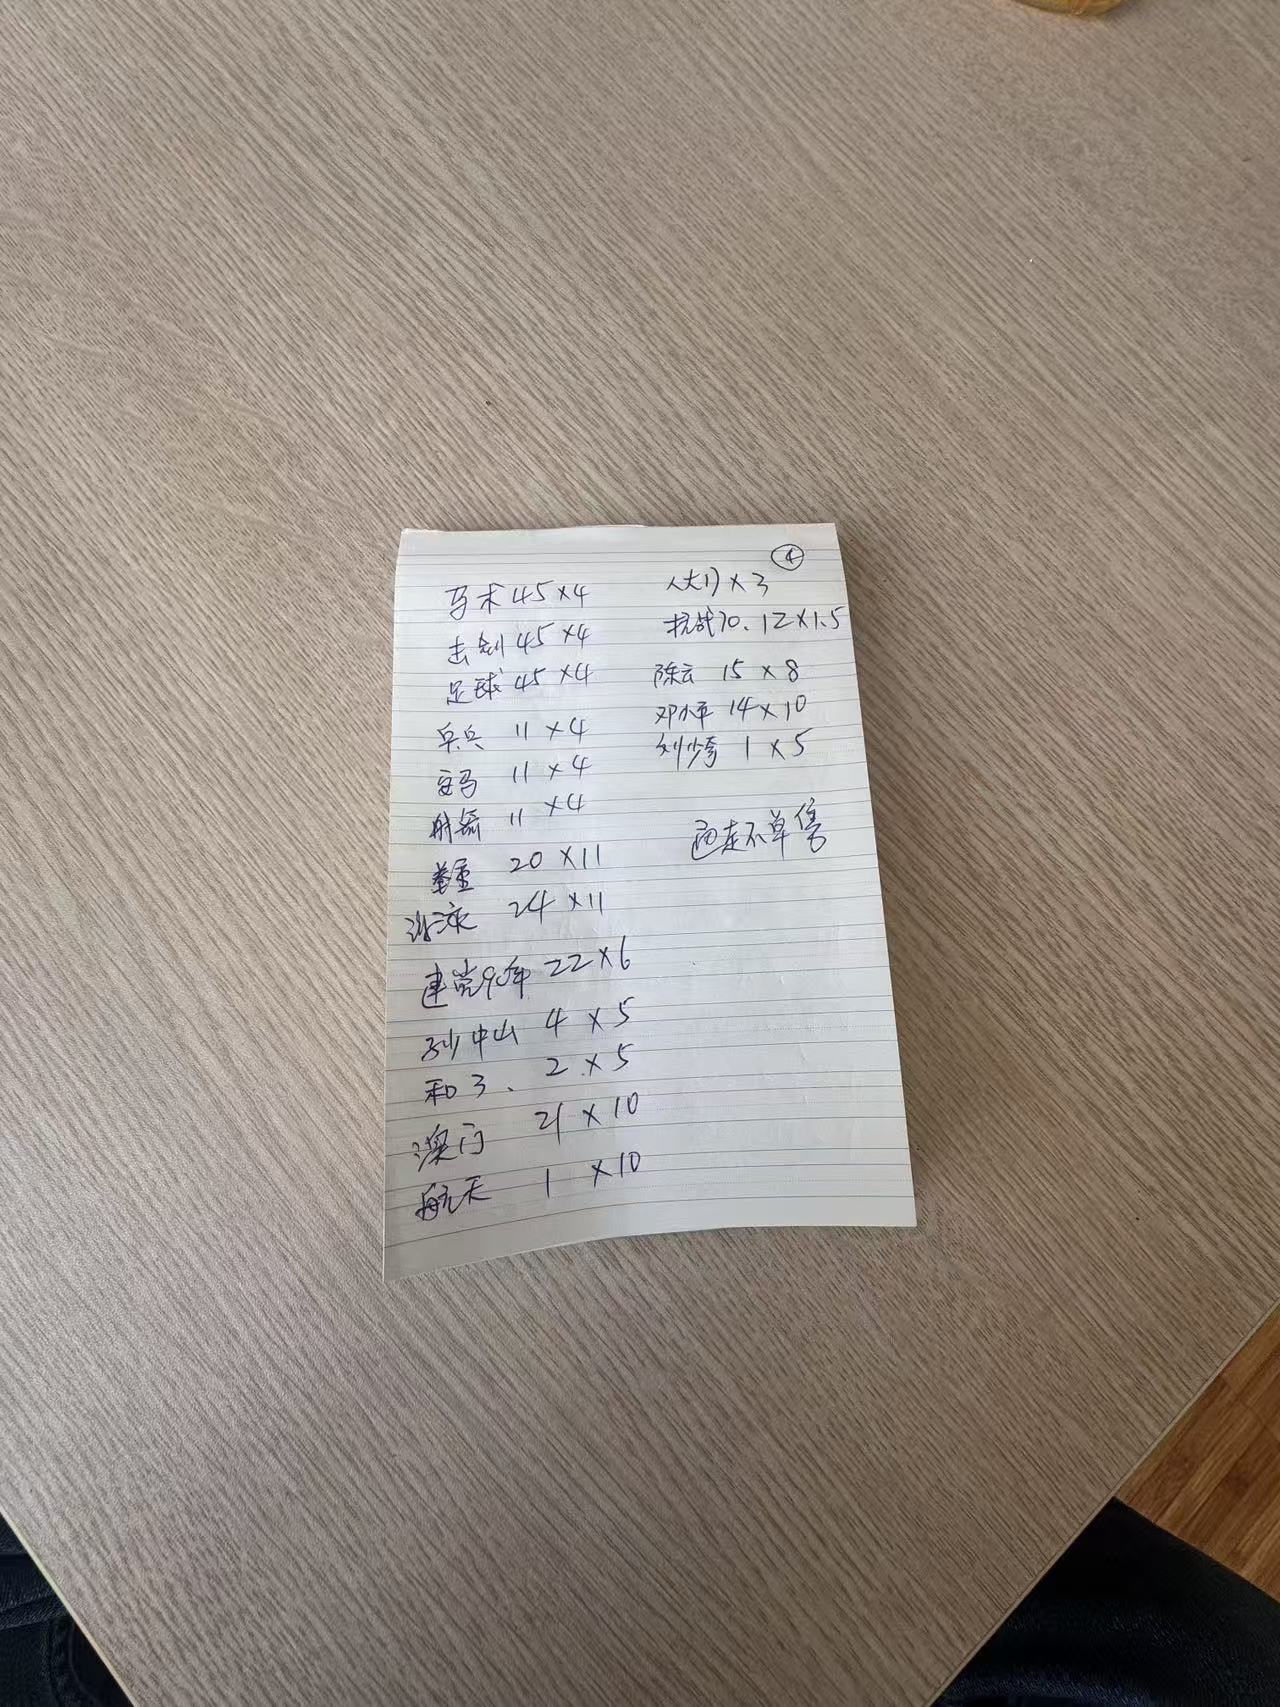 ④
马术 45×4
击剑 45×4
足球 45×4
乒乓 11×4
安马 11×4
射箭 11×4
举重 20×11
游泳 24×11
建党90年 22×6
孙中山 4×5
和3、2×5
澳门 21×10
航天 1×10
人大17×3
抗战70、12×1.5
陈云 15×8
邓小平 14×10
刘少奇 1×5
通走不单售